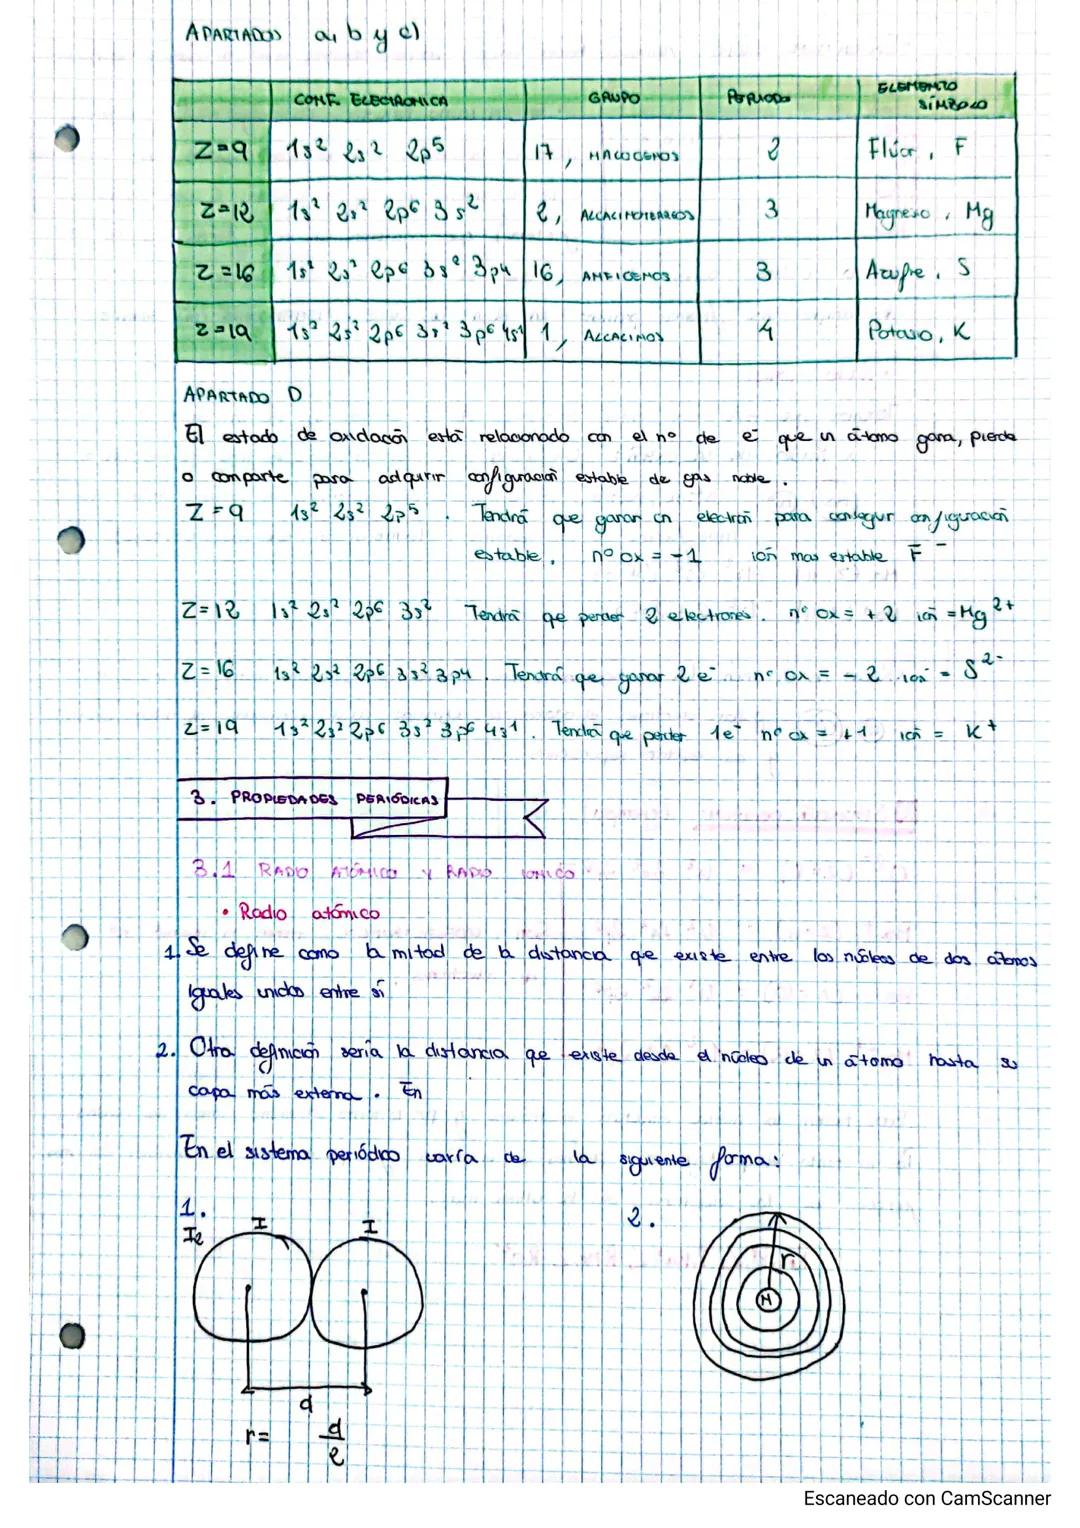 APARTADOS a, b y c)
CONF. ELECTRONICA GRUPO PERIODO ELEMENTO SÍMBOLO
Z=9 1s² 2s² 2p5 17, HALOGENOS 2 Flúor, F
Z=12 1s² 2s² 2p6 3s² 2, ALCALINOTERREOS 3 Magnesio, Mg
Z=16 1s² 2s² 2p6 3s² 3p4 16, ANFIGENOS 3 Azufre, S
Z=19 1s² 2s² 2p6 3s² 3p6 4s1 1, ALCALINOS 4 Potasio, K
APARTADO D
El estado de oxidación está relacionado con el nº de e⁻ que un átomo gana, pierde
o comparte para adquirir configuración estable de gas noble.
Z=9 1s² 2s² 2p5. Tendrá que ganar un electrón para conseguir configuración
estable. nº ox = -1 ión mas estable F⁻
Z=12 1s² 2s² 2p6 3s² Tendrá que perder 2 electrones. nº ox = +2 ión = Mg²⁺
Z=16 1s² 2s² 2p6 3s² 3p4. Tendrá que ganar 2 e⁻. nº ox = -2 ión = S²⁻
Z=19 1s² 2s² 2p6 3s² 3p6 4s1. Tendrá que perder 1e⁻ nº ox = +1 ión = K⁺
3. PROPIEDADES PERIÓDICAS
3.1 RADIO ATÓMICO Y RADIO IONICO
• Radio atómico
1. Se define como la mitad de la distancia que existe entre los núcleos de dos átomos
iguales unidos entre sí
2. Otra definición sería la distancia que existe desde el núcleo de un átomo hasta su
capa más externa. En
En el sistema periódico varía de la siguiente forma:
1. 2.
I2 I I
r
N
d
r= d/2
Escaneado con CamScanner